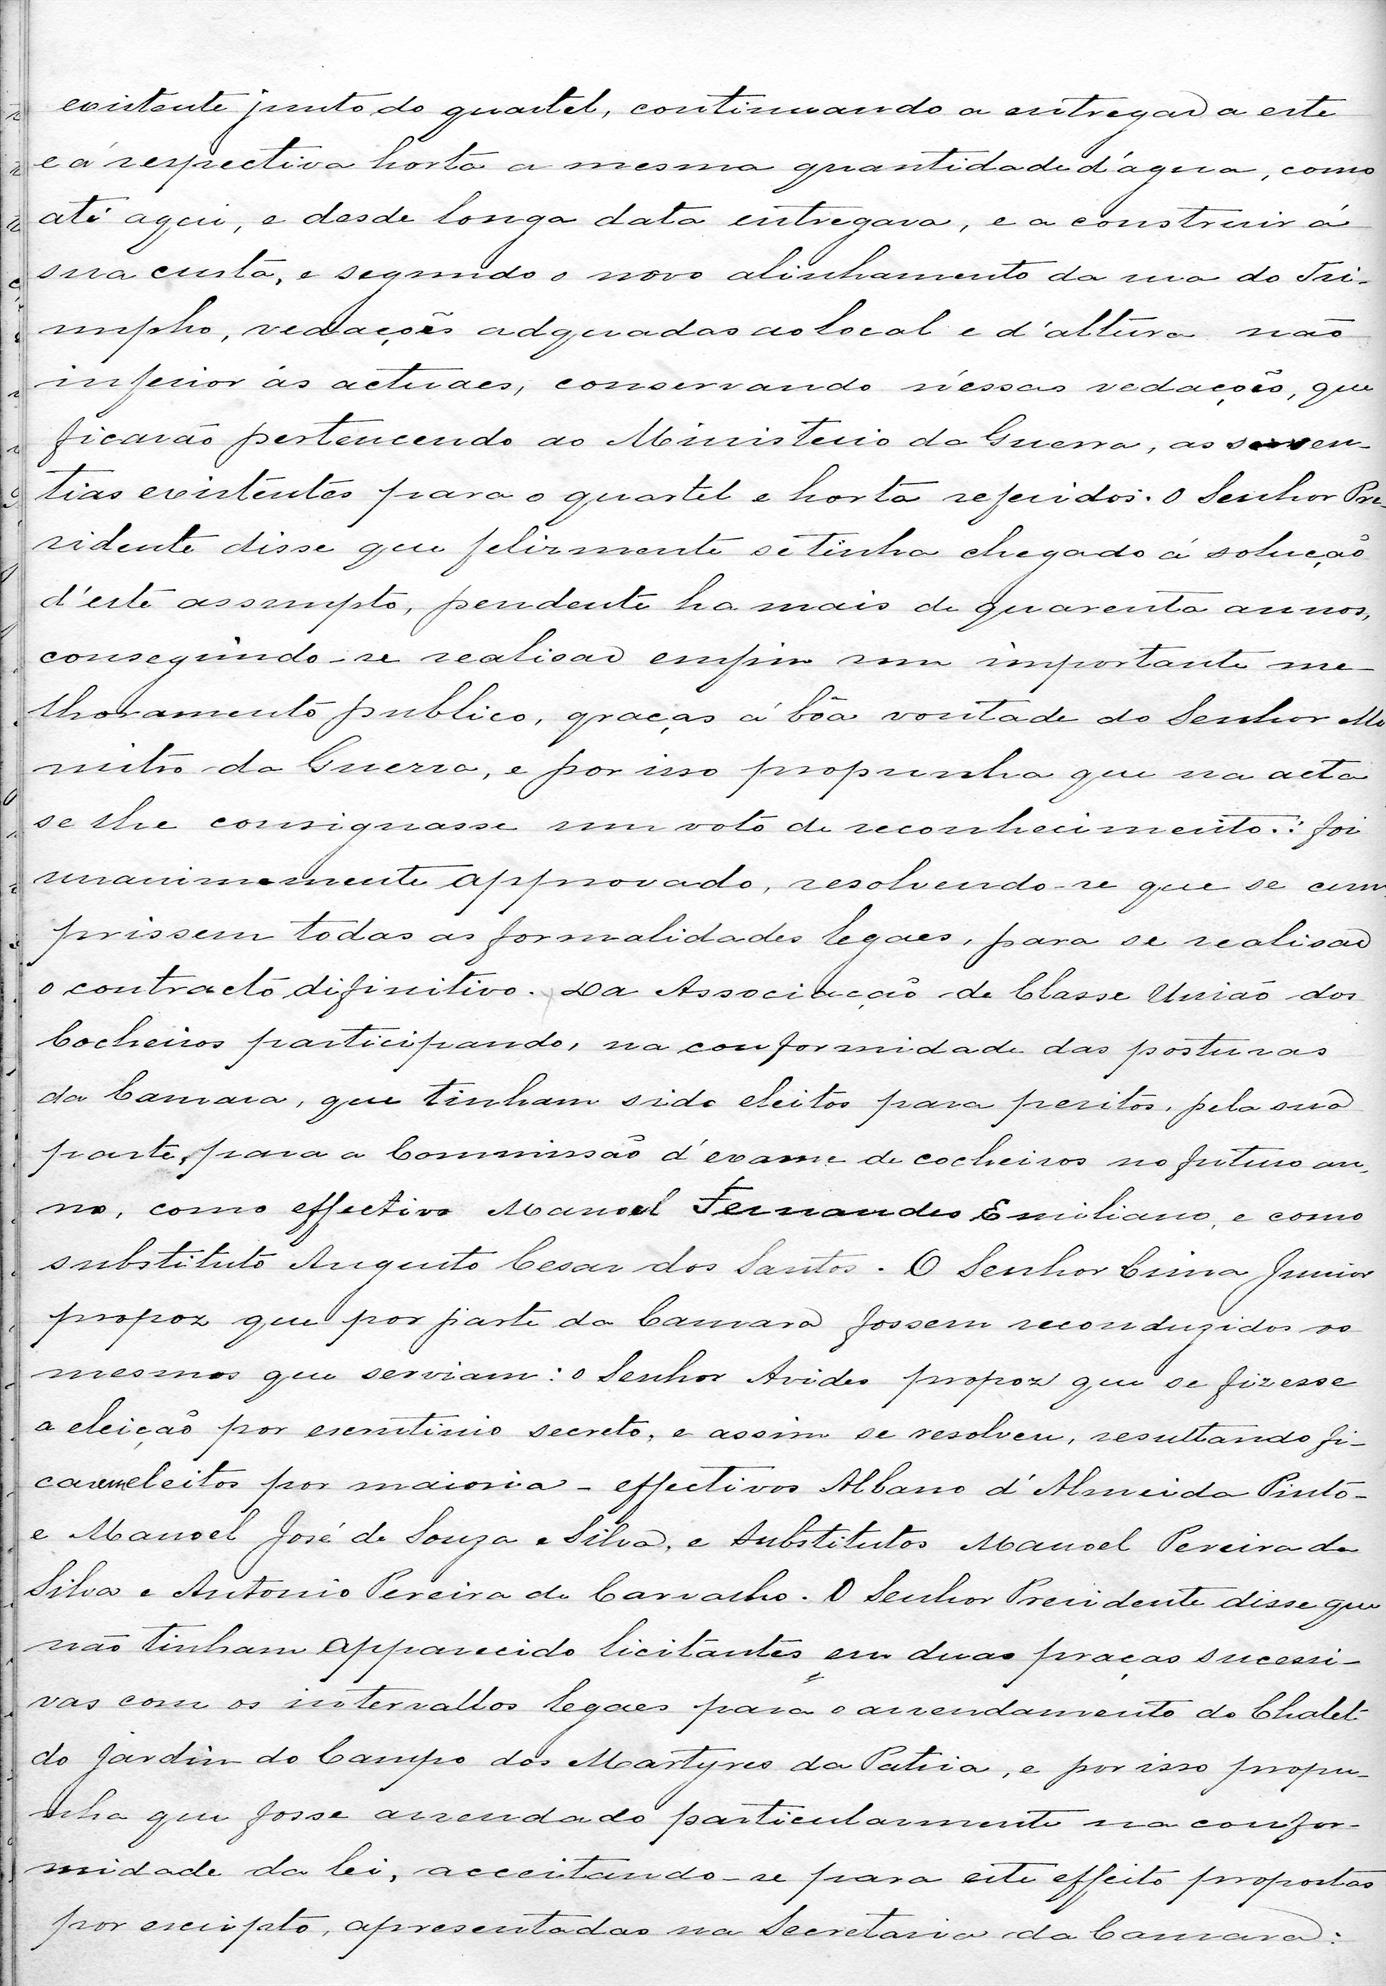 existente junto do quartel, continuando a entregar a este
e á respectiva horta a mesma quantidade d'água, como
até aqui, e desde longa data entregava, e a construir á
sua custa, e segundo o novo alinhamento da rua do Tri-
umpho, vedações adquadas ao local e d'altura não
inferior ás actuaes, conservando n'essas vedações, que
ficarão pertencendo ao Ministerio da Guerra, as serven-
tias existentes para o quartel e horta referidos. O Senhor Pre-
sidente disse que felizmente se tinha chegado á solução
d'este assumpto, pendente ha mais de quarenta annos,
conseguindo-se realisar emfim um importante me-
lhoramento publico, graças á bôa vontade do Senhor Mi
nistro da Guerra, e por isso propunha que na acta
se lhe consignasse um voto de reconhecimento: foi
unanimemente approvado, resolvendo-se que se cum-
prissem todas as formalidades legaes, para se realisar
o contracto difinitivo. Da Associação de Classe União dos
Cocheiros participando, na conformidade das posturas
da Camara, que tinham sido eleitos para peritos, pela sua
parte, para a Commissão d'exame de cocheiros no futuro an-
no, como effectivo Manoel Fernandes Emiliano, e como
substituto Augusto Cesar dos Santos. O Senhor Lima Junior
propoz que por parte da Camara fossem reconduzidos os
mesmos que serviam: o Senhor Avides propoz que se fizesse
a eleição por escrutinio secreto, e assim se resolveu, resultando fi-
carem eleitos por maioria - effectivos Albano d'Almeida Pinto -
e Manoel José de Souza e Silva, e substitutos Manoel Pereira da
Silva e Antonio Pereira de Carvalho. O Senhor Presidente disse que
não tinham apparecido licitantes em duas praças sucessi-
vas com os intervallos legaes para o arrendamento do Chalet
do jardin do Campo dos Martyres da Patria, e por isso propu-
nha que fosse arrendado particularmente na confor-
midade da lei, acceitando-se para este effeito propostas
por escripto, apresentadas na Secretaria da Camara: